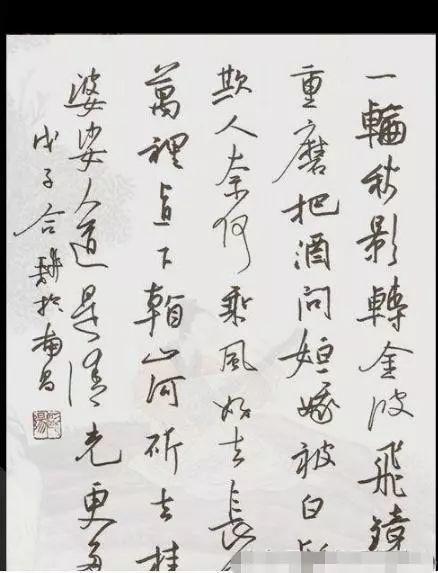 一輪秋影轉金波飛鏡
重磨把酒問姮娥被白
欺人奈何乘風好去長
萬裡直下山河斫去桂
婆娑人道是清光更多
戊子合於南昌